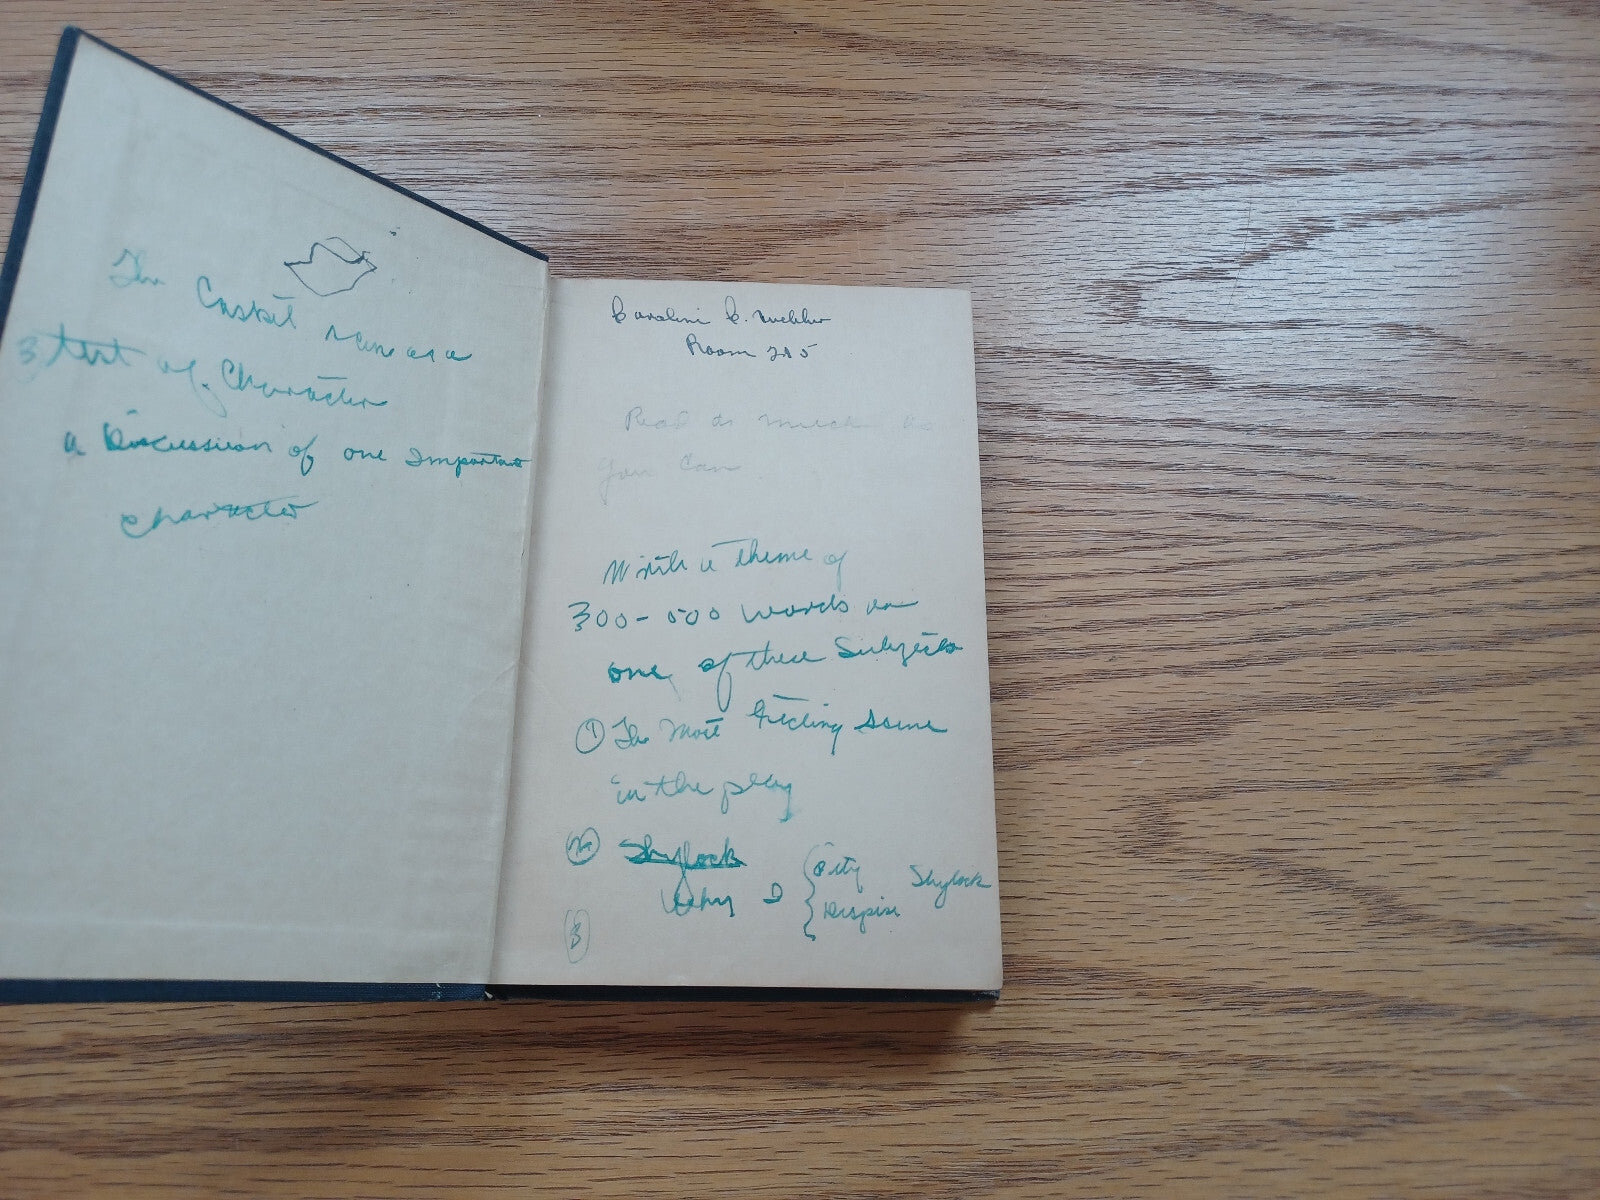 The Casket scene as a
3 test of Character
a Discussion of one Important
character
Caroline C.
Room 205
Read as much as
you can
Write a theme of
300-500 words on
one of these Subjects
① The Most Exciting Scene
in the play
② Shylock
Why I { Pity Despise Shylock
③